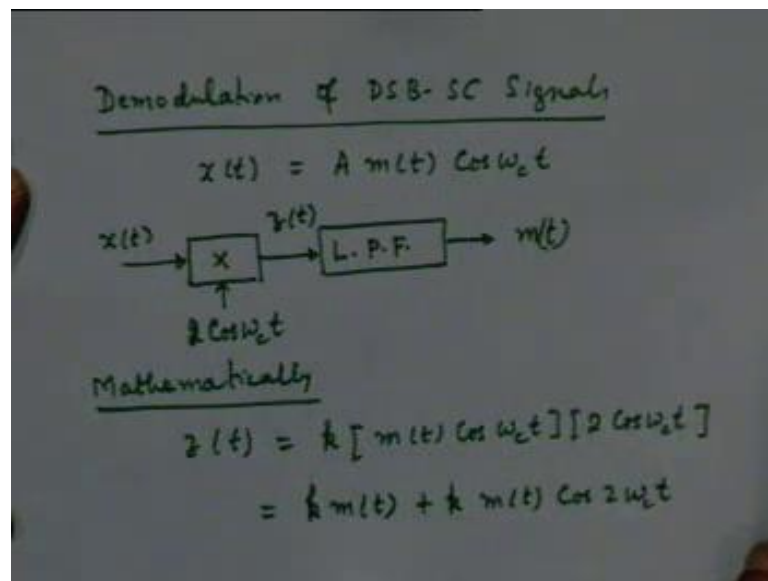 Demodulation of DSB-SC Signals
x(t) = A m(t) Cos ω_c t
x(t) → [X] z(t) → [L.P.F.] → m(t)
2 Cos ω_c t
Mathematically
z(t) = k [ m(t) Cos ω_c t ] [ 2 Cos ω_c t ]
= k m(t) + k m(t) Cos 2 ω_c t